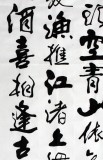 頭空青山依
漁樵江渚上
酒喜相逢古